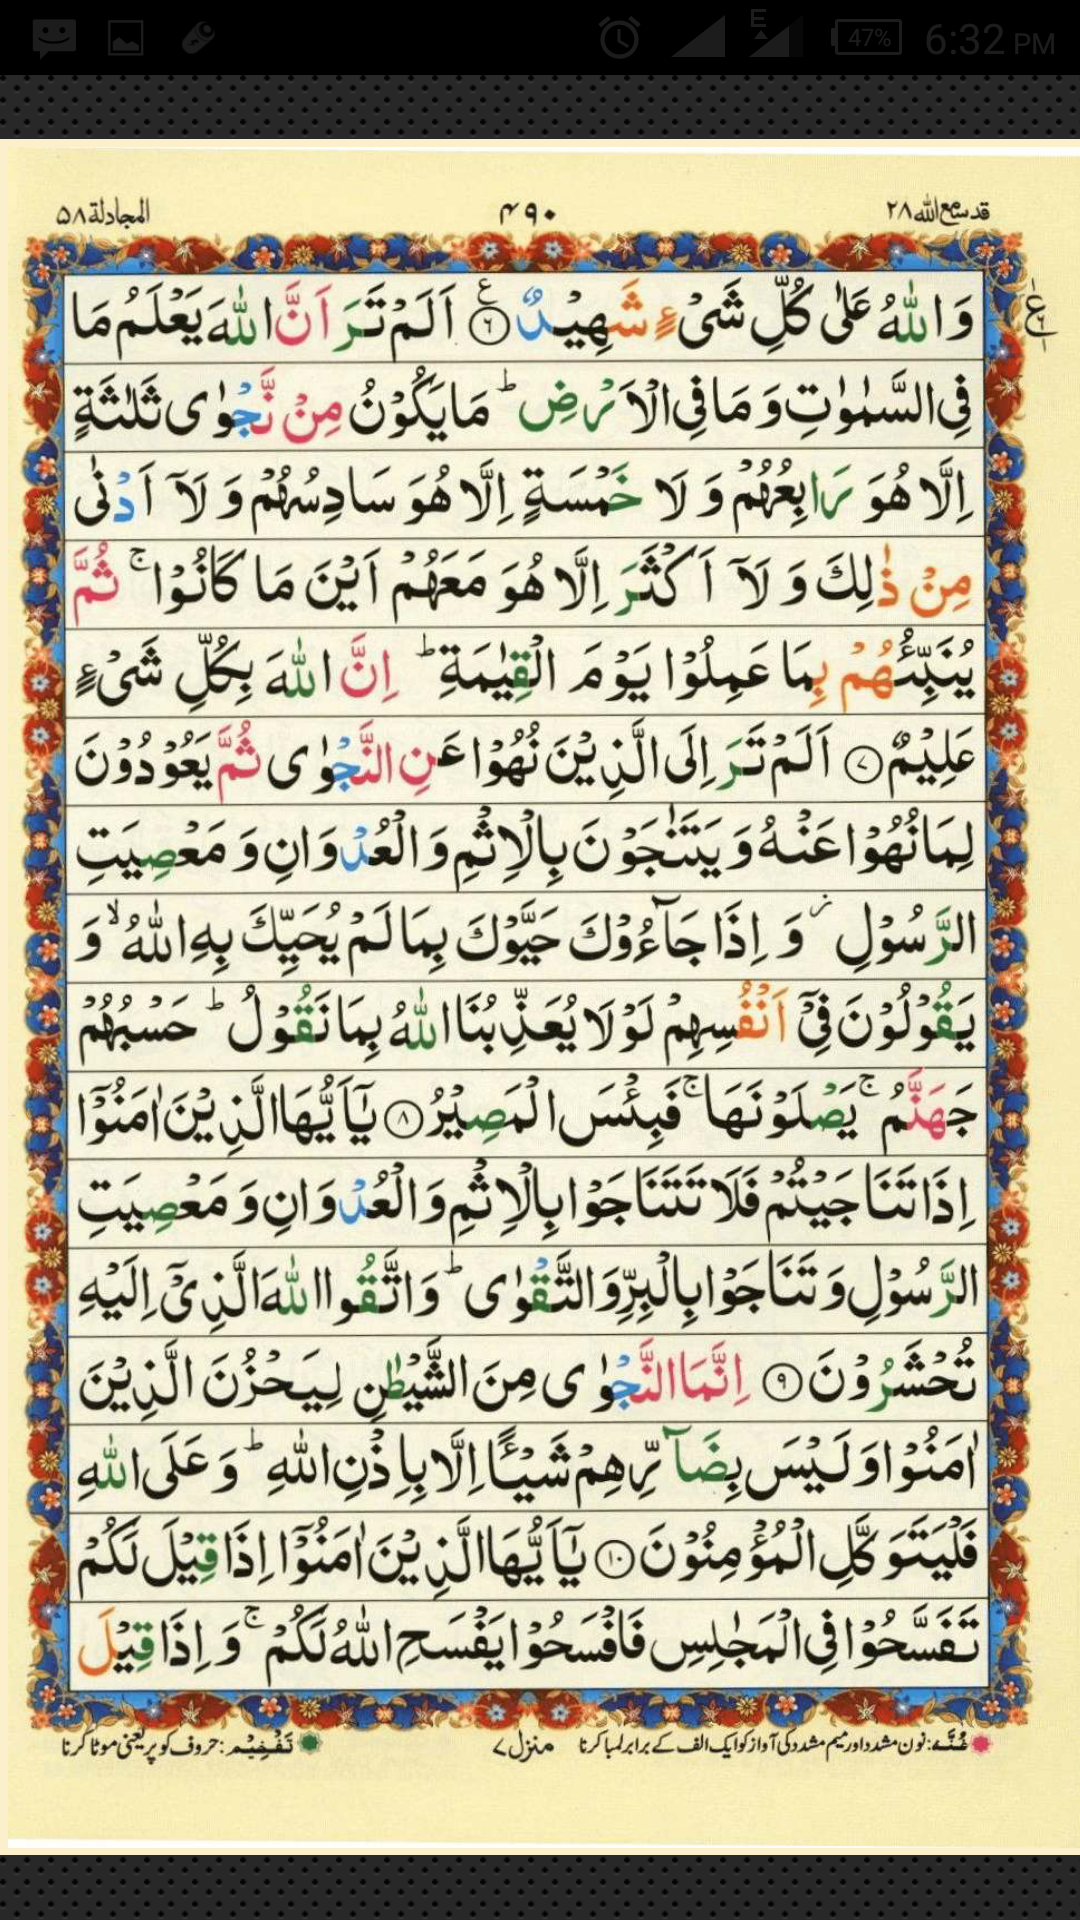 47%
6:32 PM
قد سمع الله ٢٨
۴۹۰
المجادلة ۵۸
وَ اللّٰهُ عَلٰى كُلِّ شَیْءٍ شَهِیْدٌ ۶ اَلَمْ تَرَ اَنَّ اللّٰهَ یَعْلَمُ مَا
فِی السَّمٰوٰتِ وَ مَا فِی الْاَرْضِ ؕ مَا یَكُوْنُ مِنْ نَّجْوٰى ثَلٰثَةٍ
اِلَّا هُوَ رَابِعُهُمْ وَ لَا خَمْسَةٍ اِلَّا هُوَ سَادِسُهُمْ وَ لَاۤ اَدْنٰى
مِنْ ذٰلِكَ وَ لَاۤ اَكْثَرَ اِلَّا هُوَ مَعَهُمْ اَیْنَ مَا كَانُوْا ۚ ثُمَّ
یُنَبِّئُهُمْ بِمَا عَمِلُوْا یَوْمَ الْقِیٰمَةِ ؕ اِنَّ اللّٰهَ بِكُلِّ شَیْءٍ
عَلِیْمٌ ۷ اَلَمْ تَرَ اِلَى الَّذِیْنَ نُهُوْا عَنِ النَّجْوٰى ثُمَّ یَعُوْدُوْنَ
لِمَا نُهُوْا عَنْهُ وَ یَتَنٰجَوْنَ بِالْاِثْمِ وَ الْعُدْوَانِ وَ مَعْصِیَتِ
الرَّسُوْلِ ؗ وَ اِذَا جَآءُوْكَ حَیَّوْكَ بِمَا لَمْ یُحَیِّكَ بِهِ اللّٰهُ ۙ وَ
یَقُوْلُوْنَ فِیْۤ اَنْفُسِهِمْ لَوْ لَا یُعَذِّبُنَا اللّٰهُ بِمَا نَقُوْلُ ؕ حَسْبُهُمْ
جَهَنَّمُ ۚ یَصْلَوْنَهَا ۚ فَبِئْسَ الْمَصِیْرُ ۸ یٰۤاَیُّهَا الَّذِیْنَ اٰمَنُوْۤا
اِذَا تَنَاجَیْتُمْ فَلَا تَتَنَاجَوْا بِالْاِثْمِ وَ الْعُدْوَانِ وَ مَعْصِیَتِ
الرَّسُوْلِ وَ تَنَاجَوْا بِالْبِرِّ وَ التَّقْوٰى ؕ وَ اتَّقُوا اللّٰهَ الَّذِیْۤ اِلَیْهِ
تُحْشَرُوْنَ ۹ اِنَّمَا النَّجْوٰى مِنَ الشَّیْطٰنِ لِیَحْزُنَ الَّذِیْنَ
اٰمَنُوْا وَ لَیْسَ بِضَآرِّهِمْ شَیْـًٔا اِلَّا بِاِذْنِ اللّٰهِ ؕ وَ عَلَى اللّٰهِ
فَلْیَتَوَكَّلِ الْمُؤْمِنُوْنَ ۱۰ یٰۤاَیُّهَا الَّذِیْنَ اٰمَنُوْۤا اِذَا قِیْلَ لَكُمْ
تَفَسَّحُوْا فِی الْمَجٰلِسِ فَافْسَحُوْا یَفْسَحِ اللّٰهُ لَكُمْ ۚ وَ اِذَا قِیْلَ
غُنَّہ: نون مشدد اور میم مشدد کی آواز کو ایک الف کے برابر لمبا کرنا منزل ۷ تَفْخِیْم: حروف کو پر یعنی موٹا کرنا